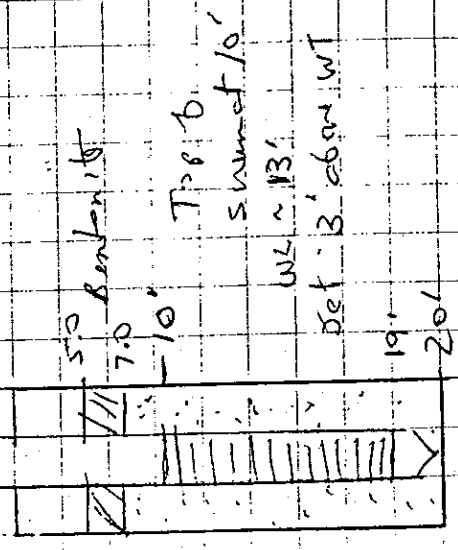 5.0
Bentonite
7.0
10'
Top of
screen at 10'
WL ~ 13'
Set 3' above WT
19'
20'